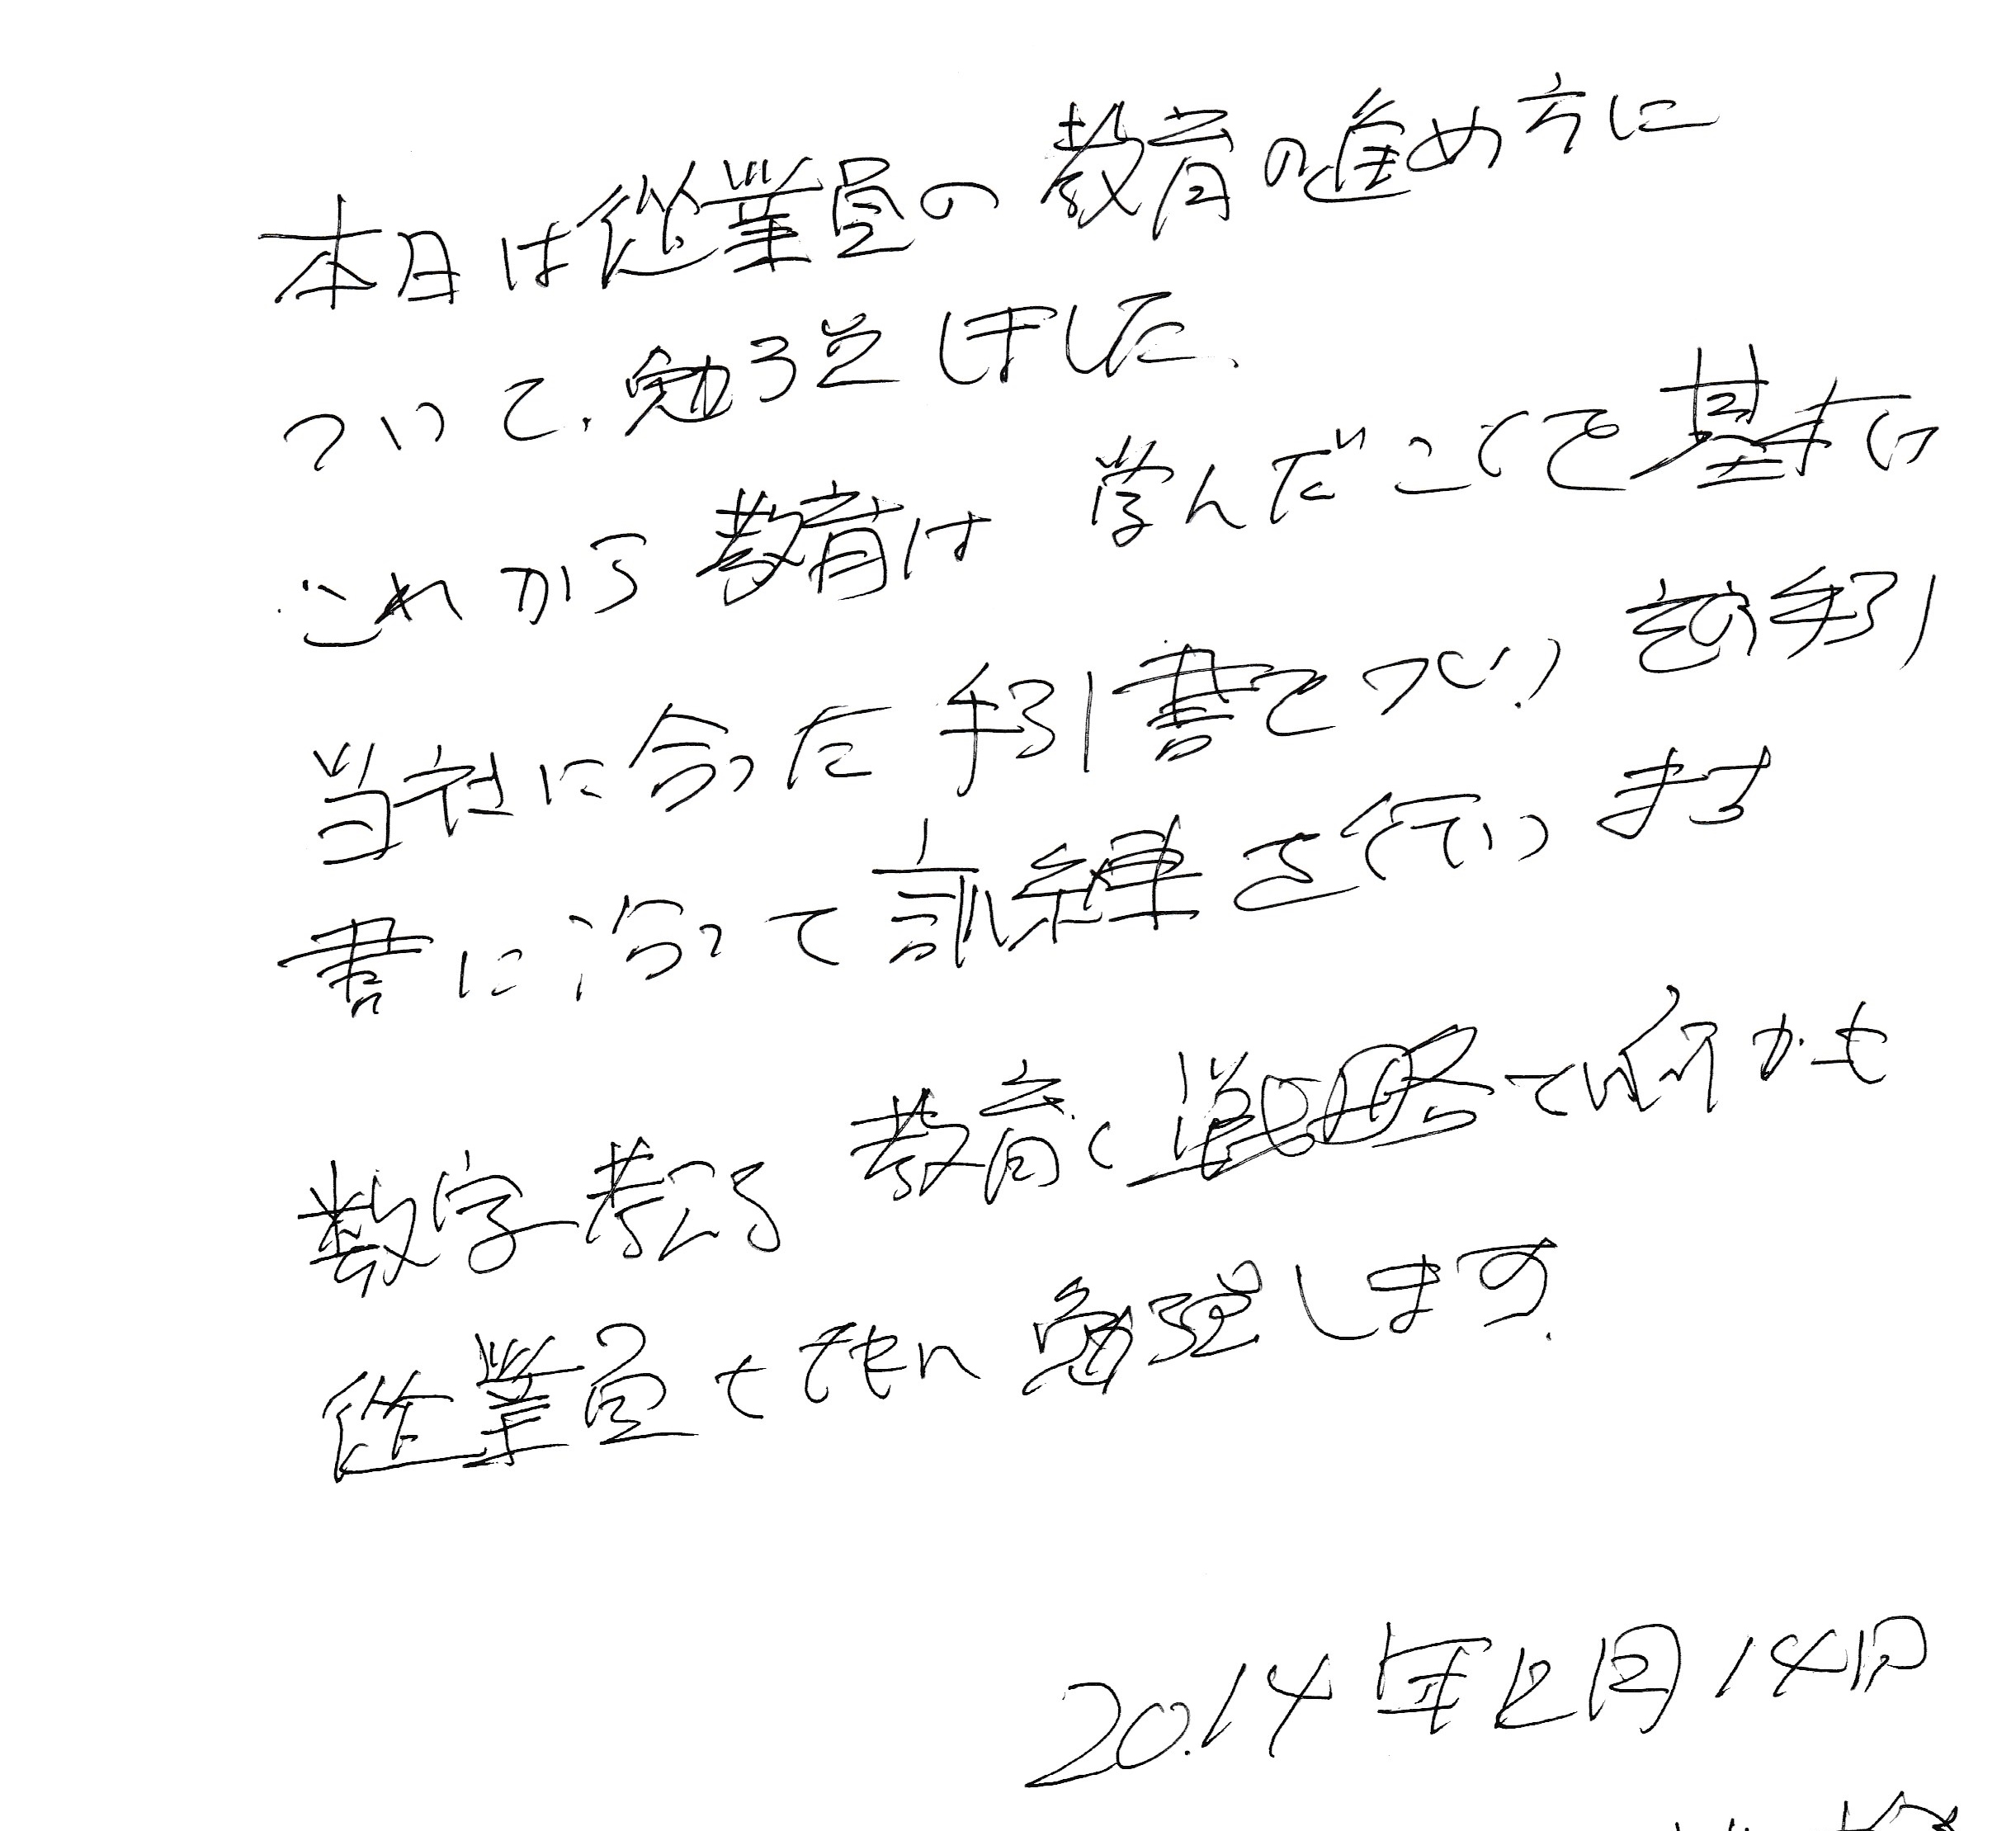 本日は従業員の教育の進め方に
ついて、勉強しました。
これから教育は学んだことを基本に
当社に合った手引書をつくり その手引
書に沿って訓練を行います
数字考える 教育と戦略で何かも
従業員と共に勉強します。
2014年12月14日